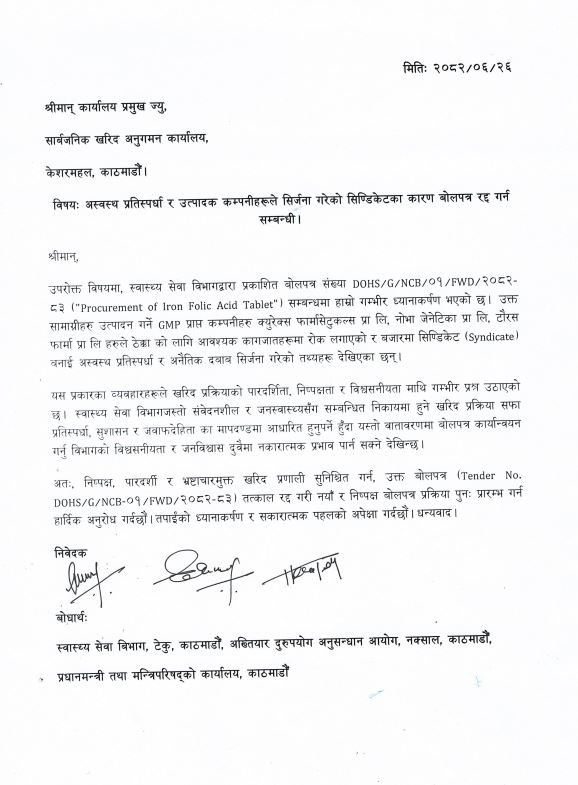 मितिः २०८२/०६/२६
श्रीमान् कार्यालय प्रमुख ज्यु,
सार्बजनिक खरिद अनुगमन कार्यालय,
केशरमहल, काठमाडौं।
विषयः अस्वस्थ प्रतिस्पर्धा र उत्पादक कम्पनीहरूले सिर्जना गरेको सिण्डिकेटका कारण बोलपत्र रद्द गर्न
सम्बन्धी।
श्रीमान्,
उपरोक्त विषयमा, स्वास्थ्य सेवा विभागद्वारा प्रकाशित बोलपत्र संख्या DOHS/G/NCB/०१/FWD/२०८२-
८३ ("Procurement of Iron Folic Acid Tablet") सम्बन्धमा हाम्रो गम्भीर ध्यानाकर्षण भएको छ। उक्त
सामाग्रीहरु उत्पादन गर्ने GMP प्राप्त कम्पनीहरु क्युरेक्स फार्मासेटुकल्स प्रा लि, नोभा जेनेटिका प्रा लि, टौरस
फार्मा प्रा लि हरुले ठेक्का को लागि आवश्यक कागजातहरूमा रोक लगाएको र बजारमा सिण्डिकेट (Syndicate)
बनाई अस्वस्थ प्रतिस्पर्धा र अनैतिक दबाव सिर्जना गरेको तथ्यहरू देखिएका छन्।
यस प्रकारका व्यवहारहरूले खरिद प्रक्रियाको पारदर्शिता, निष्पक्षता र विश्वसनीयता माथि गम्भीर प्रश्न उठाएको
छ। स्वास्थ्य सेवा विभागजस्तो संवेदनशील र जनस्वास्थ्यसँग सम्बन्धित निकायमा हुने खरिद प्रक्रिया सफा
प्रतिस्पर्धा, सुशासन र जवाफदेहिता का मापदण्डमा आधारित हुनुपर्ने हुँदा यस्तो वातावरणमा बोलपत्र कार्यान्वयन
गर्नु विभागको विश्वसनीयता र जनविश्वास दुवैमा नकारात्मक प्रभाव पार्न सक्ने देखिन्छ।
अतः, निष्पक्ष, पारदर्शी र भ्रष्टाचारमुक्त खरिद प्रणाली सुनिश्चित गर्न, उक्त बोलपत्र (Tender No.
DOHS/G/NCB-०१/FWD/२०८२-८३) तत्काल रद्द गरी नयाँ र निष्पक्ष बोलपत्र प्रक्रिया पुनः प्रारम्भ गर्न
हार्दिक अनुरोध गर्दछौं। तपाईंको ध्यानाकर्षण र सकारात्मक पहलको अपेक्षा गर्दछौं। धन्यवाद।
निवेदक
बोधार्थः
स्वास्थ्य सेवा बिभाग, टेकु, काठमाडौं, अख्तियार दुरुपयोग अनुसन्धान आयोग, नक्साल, काठमाडौं,
प्रधानमन्त्री तथा मन्त्रिपरिषद्को कार्यालय, काठमाडौं